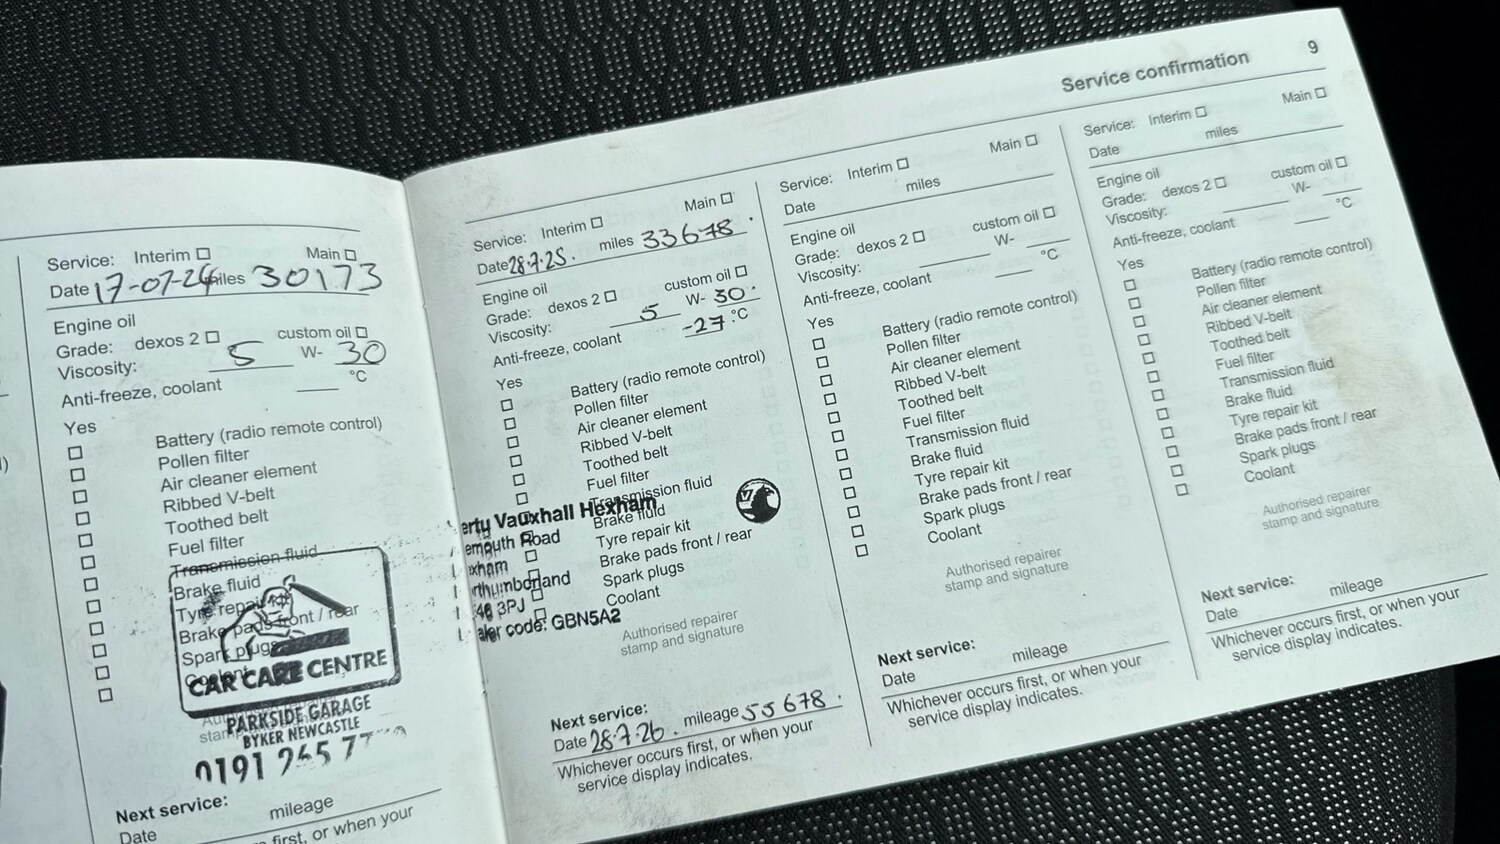 Service confirmation 9
Service: Interim Main
Date 17-07-24 miles 30173
Engine oil
Grade: dexos 2 custom oil
Viscosity: 5 W- 30
Anti-freeze, coolant °C
Yes
Battery (radio remote control)
Pollen filter
Air cleaner element
Ribbed V-belt
Toothed belt
Fuel filter
Transmission fluid
Brake fluid
Tyre repair kit
Brake pads front / rear
Spark plugs
Coolant
CAR CARE CENTRE
PARKSIDE GARAGE
BYKER NEWCASTLE
0191 265
Next service:
Date mileage
first, or when your
Service: Interim Main
Date 28.7.25. miles 33678.
Engine oil
Grade: dexos 2 custom oil
Viscosity: 5 W- 30.
Anti-freeze, coolant -27 °C
Yes
Battery (radio remote control)
Pollen filter
Air cleaner element
Ribbed V-belt
Toothed belt
Fuel filter
Transmission fluid
Brake fluid
Tyre repair kit
Brake pads front / rear
Spark plugs
Coolant
erty Vauxhall Hexham
emouth Road
xham
rthumberland
46 3PJ
aler code: GBN5A2
Authorised repairer
stamp and signature
Next service:
Date 28.7.26. mileage 55678.
Whichever occurs first, or when your
service display indicates.
Service: Interim Main
Date miles
Engine oil
Grade: dexos 2 custom oil
Viscosity: W-
Anti-freeze, coolant °C
Yes
Battery (radio remote control)
Pollen filter
Air cleaner element
Ribbed V-belt
Toothed belt
Fuel filter
Transmission fluid
Brake fluid
Tyre repair kit
Brake pads front / rear
Spark plugs
Coolant
Authorised repairer
stamp and signature
Next service:
Date mileage
Whichever occurs first, or when your
service display indicates.
Service: Interim Main
Date miles
Engine oil
Grade: dexos 2 custom oil
Viscosity: W-
Anti-freeze, coolant °C
Yes
Battery (radio remote control)
Pollen filter
Air cleaner element
Ribbed V-belt
Toothed belt
Fuel filter
Transmission fluid
Brake fluid
Tyre repair kit
Brake pads front / rear
Spark plugs
Coolant
Authorised repairer
stamp and signature
Next service:
Date mileage
Whichever occurs first, or when your
service display indicates.